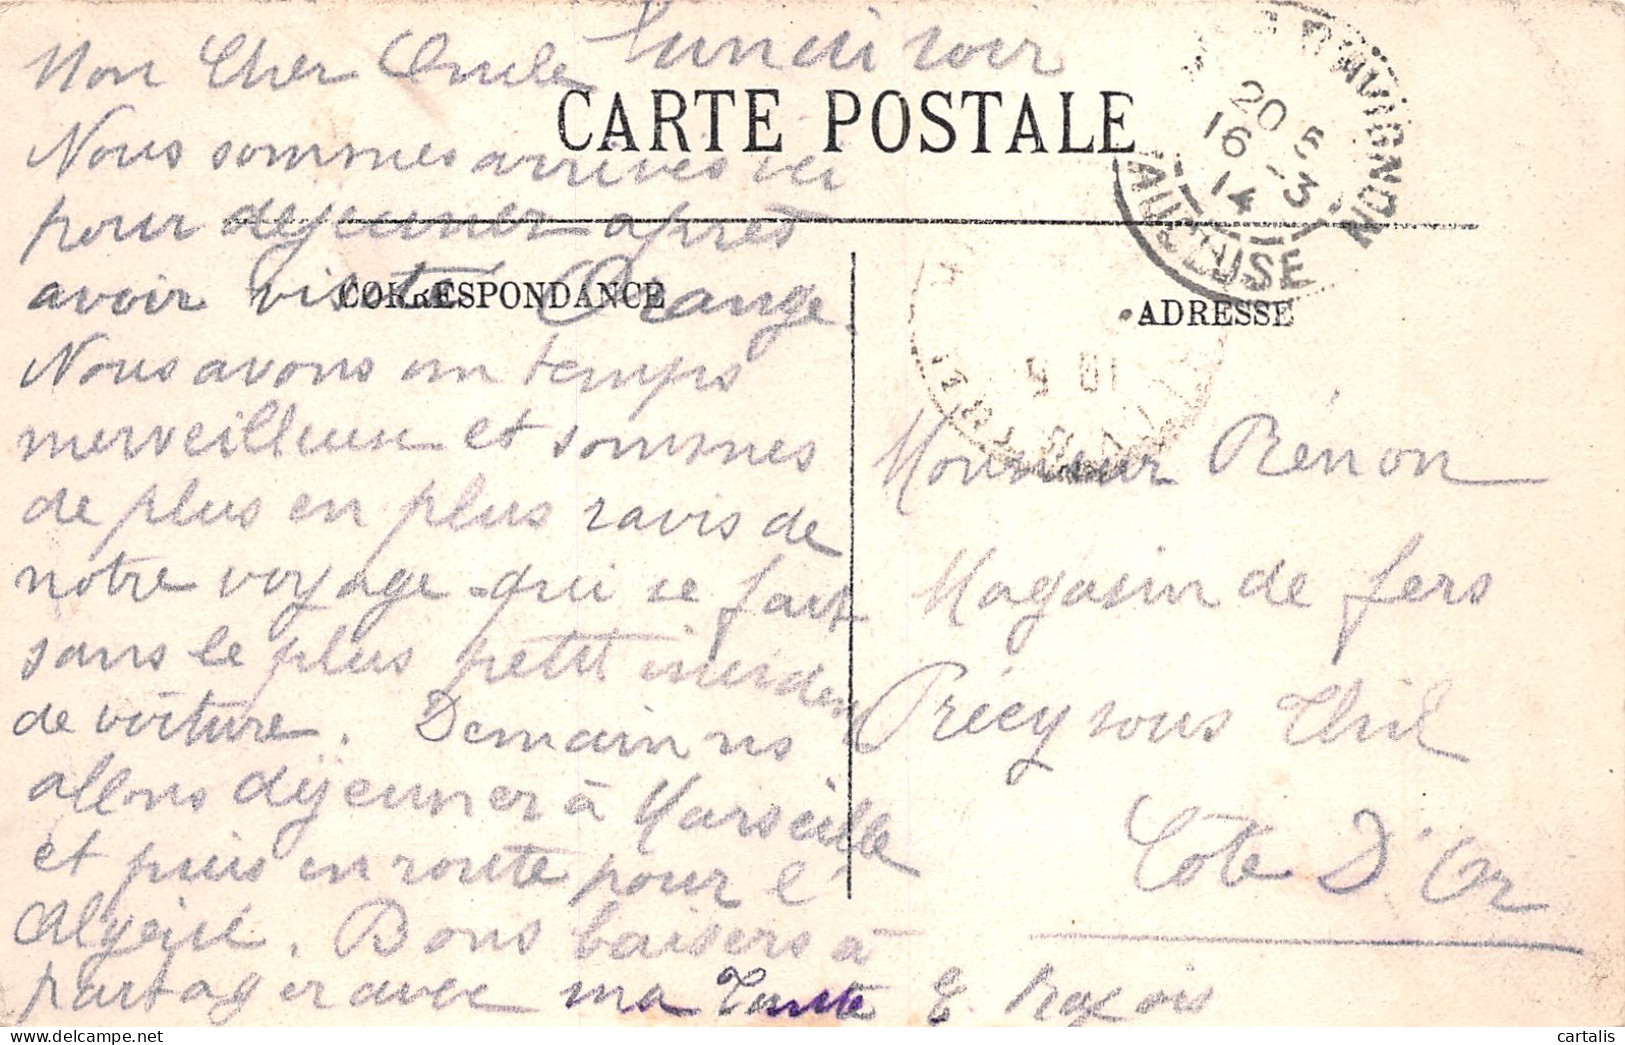 Mon Cher Oncle lundi soir
CARTE POSTALE
Nous sommes arrivés ici
pour déjeuner après
avoir visité Orange.
Nous avons un temps
merveilleux et sommes
de plus en plus ravis de
notre voyage qui se fait
sans le plus petit incident
de voiture. Demain ns
allons déjeuner à Marseille
et puis en route pour l'
Algérie. Bons baisers à
partager avec ma Tante E.
CORRESPONDANCE
ADRESSE
Monsieur Rénon
Magasin de fers
Précy sous Thil
Côte D'Or
D'AVIGNON
20 5
16 3
14
VAUCLUSE
cartalis